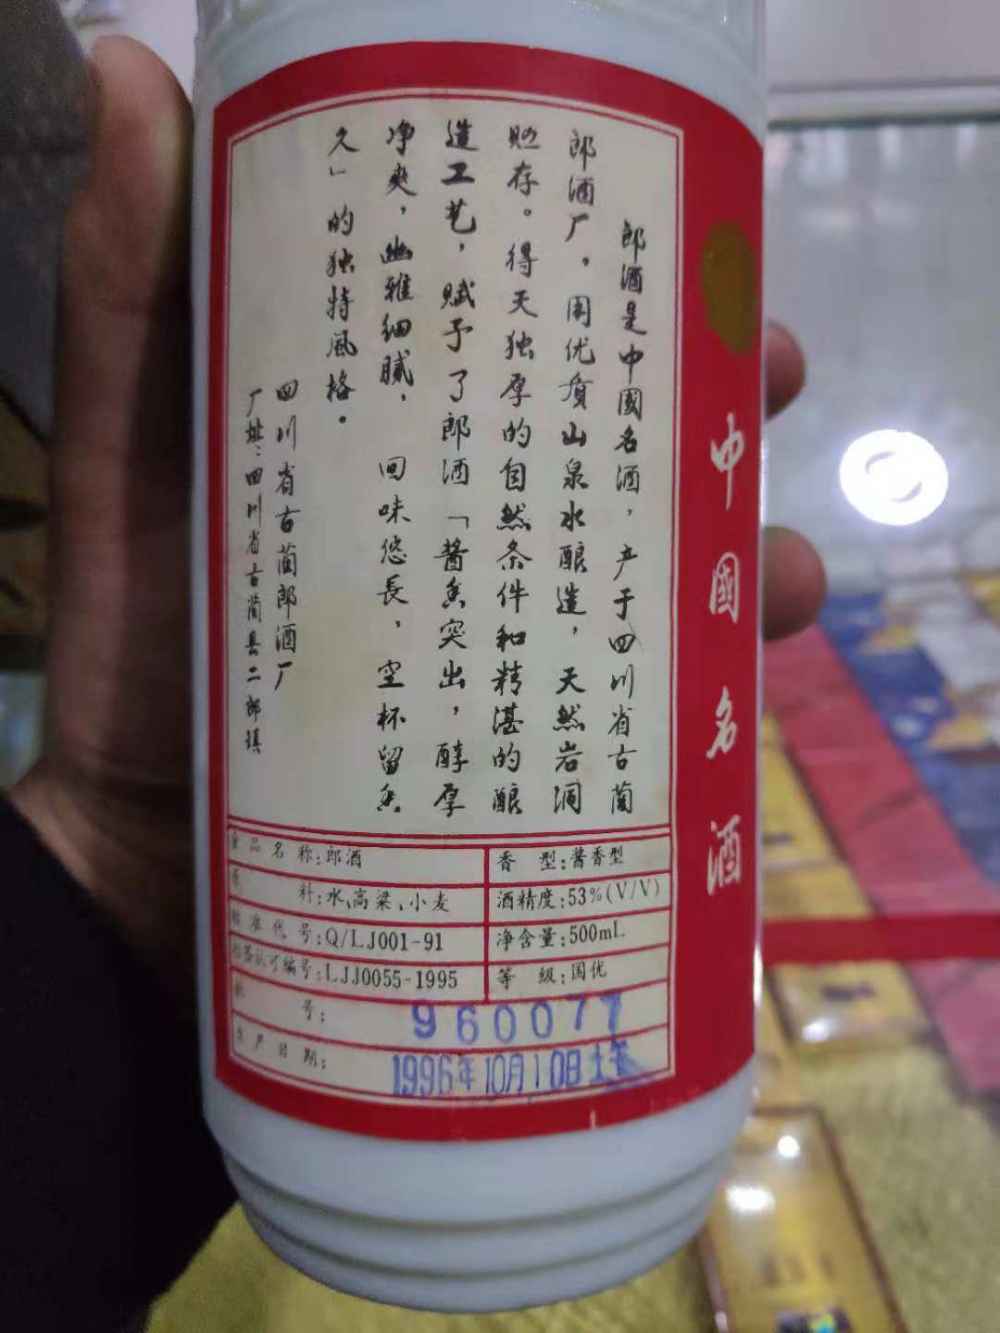 郎酒是中國名酒，产于四川省古蔺
郎酒厂。用优质山泉水酿造，天然岩洞
贮存。得天独厚的自然条件和精湛的酿
造工艺，赋予了郎酒「酱香突出，醇厚
净爽，幽雅细腻，回味悠長，空杯留香
久」的独特风格。
四川省古蔺郎酒厂
厂址：四川省古蔺县二郎镇
中國名酒
食品名称：郎酒
香型：酱香型
原料：水、高粱、小麦
酒精度：53%(V/V)
标准代号：Q/LJ001-91
净含量：500mL
标签认可编号：LJJ0055-1995
等级：国优
批号：960077
生产日期：1996年10月10日